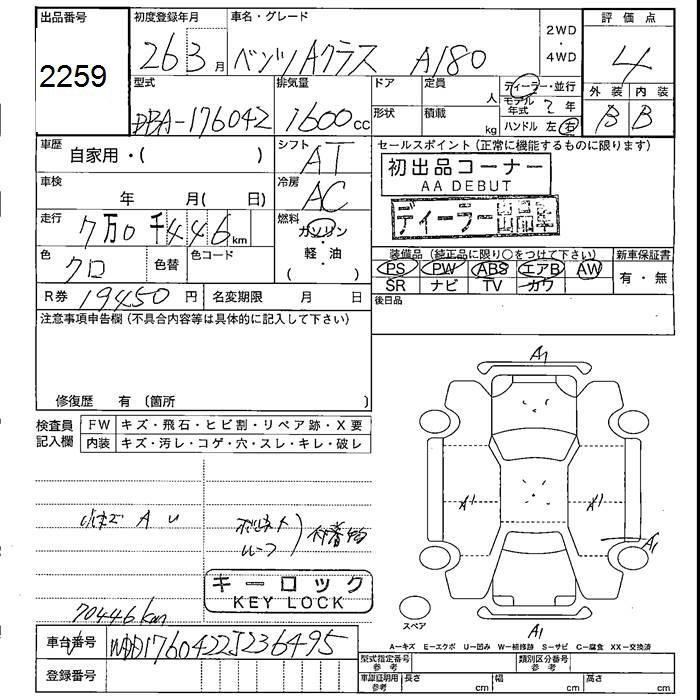 出品番号
2259
初度登録年月
26 3月
車名・グレード
ベンツAクラス A180
2WD
・
4WD
評価点
4
外装 内装
B B
型式
DBA-176042
排気量
1600cc
ドア
定員
人
形状
積載
kg
ディーラー・並行
モデル年式 ? 年
ハンドル 左 右
車歴
自家用・( )
シフト
AT
車検
年 月( 日)
冷房
AC
走行
7万0千446km
燃料
ガソリン
・
軽・油
( )
色
クロ
色替
色コード
R券 19450円
名変期限 月 日
セールスポイント(正常に機能するものに限ります)
初出品コーナー
AA DEBUT
ディーラー出品車
装備品(純正品に限り○をつけて下さい)
PS PW ABS エアB AW
SR ナビ TV カワ
新車保証書
有・無
後日品
注意事項申告欄(不具合内容等は具体的に記入して下さい)
修復歴 有(箇所 )
検査員記入欄
FW キズ・飛石・ヒビ割・リペア跡・X要
内装 キズ・汚レ・コゲ・穴・スレ・キレ・破レ
小キズ A U
ボンネット
ルーフ
付着物
キーロック
KEY LOCK
70446km
A1
A1
A1
A1
スペア
A1
A=キズ E=エクボ U=凹み W=補修跡 S=サビ C=腐食 XX=交換済
車台番号 WDD1760422J236495
登録番号
型式指定番号 参考
類別区分番号 参考
車庫証明用 参考
長さ cm
幅 cm
高さ cm